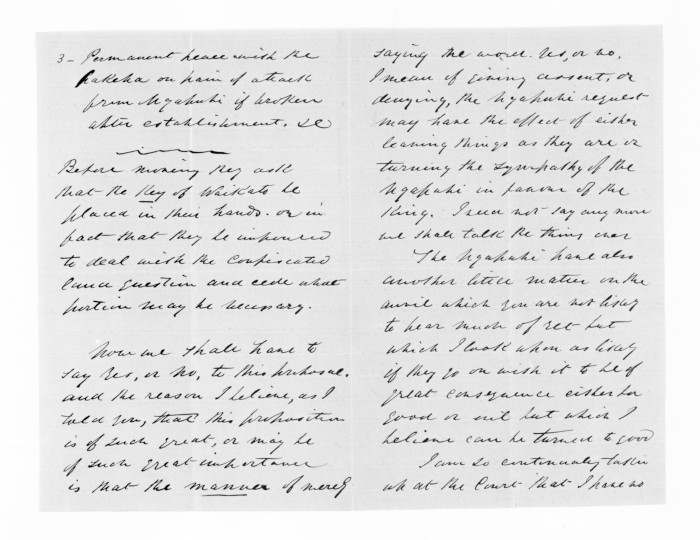 3 - Permanent peace with the
pakeha on pain of attack
from Ngapuhi if broken
after establishment. &c
Before moving they ask
that the Key of Waikato be
placed in their hands. or in
fact that they be empowered
to deal with the Confiscated
land question and cede what
portion may be necessary.
Now we shall have to
say Yes, or No, to this proposal.
and the reason I believe, as I
told you, that this proposition
is of such great, or may be
of such great importance
is that the manner of merely
saying the word. Yes, or no,
I mean of giving assent, or
denying, the Ngapuhi request
may have the effect of either
leaving things as they are or
turning the sympathy of the
Ngapuhi in favour of the
King. I need not say any more
we shall talk the thing over
The Ngapuhi have also
another little matter on the
anvil which you are not likely
to hear much of yet but
which I look upon as likely
if they go on with it to be of
great consequence either for
good or evil but which I
believe can be turned to good
I am so continually taken
up at the Court that I have no